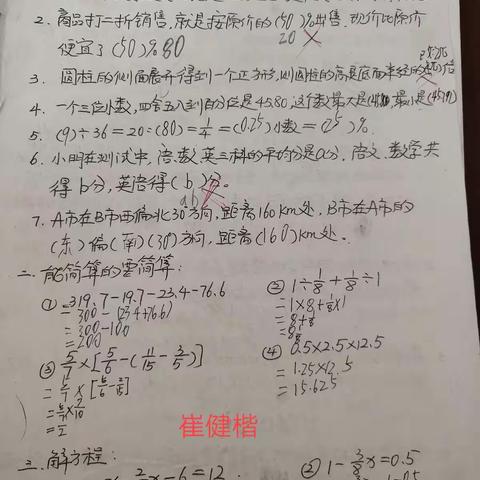 2. 商品打二折销售,就是按原价的(50)%出售,现价比原价
20
便宜了(50)%80
3. 圆柱的侧面展开得到一个正方形,则圆柱的高是底面半径的 倍
4. 一个三位小数,四舍五入到百分位是45.80,这个数最大是 最小是
5. (9)÷36=20:(80)=1/4=(0.25)小数=(25)%.
6. 小明在测试中,语、数、英三科的平均分是a分,语文、数学共
得b分,英语得(b)分。
ab
7. A市在B市西偏北30°方向,距离160km处,B市在A市的
(东)偏(南)(30°)方向,距离(160)km处。
二、能简算的要简算:
① 319.7-19.7-23.4-76.6
=300-(23.4+76.6)
=300-100
=200
② 1÷1/8+1/8÷1
=1×8+1/8×1
=8+1/8
=8 1/8
③ 5/7×[5/6-(11/15-3/5)]
=5/7×[5/6-2/15]
=5/7×7/10
=1/2
④ 0.5×2.5×12.5
=1.25×12.5
=15.625
崔健楷
三、解方程:
x-6=12
② 1-3/8x=0.5